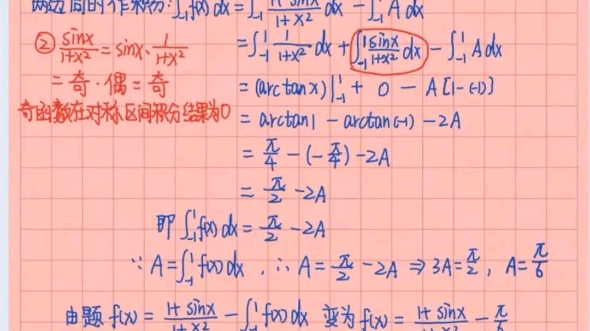 两边同时作积分:∫₋₁¹f(x)dx=∫₋₁¹ (1+sinx)/(1+x²) dx − ∫₋₁¹ A dx
② sinx/(1+x²) = sinx·1/(1+x²)
=∫₋₁¹ 1/(1+x²) dx + ∫₋₁¹ sinx/(1+x²) dx − ∫₋₁¹ A dx
= 奇·偶 = 奇
= (arctanx)|₋₁¹ + 0 − A[1-(-1)]
奇函数在对称区间积分结果为0
= arctan1 − arctan(-1) − 2A
= π/4 − (−π/4) − 2A
= π/2 − 2A
即 ∫₋₁¹f(x)dx = π/2 − 2A
∵ A=∫₋₁¹f(x)dx , ∴ A = π/2 − 2A ⇒ 3A=π/2 , A=π/6
由题 f(x) = (1+sinx)/(1+x²) − ∫₋₁¹ f(x)dx 变为 f(x) = (1+sinx)/(1+x²) − π/6